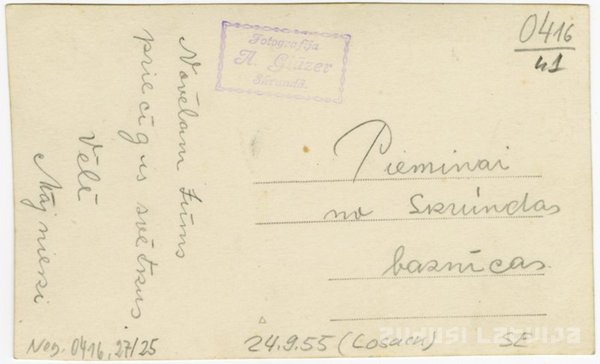 Novēlam Jums
priecīgus svētkus
Vēlē
Mājnieki
Fotografija
A. Glāzer
Skrundā.
0416
41
Pieminai
no Skrundas
baznīcas
Nog. 0416, 27/25
24.9.55 (Losach) SE
ZUDUSI LATVIJA